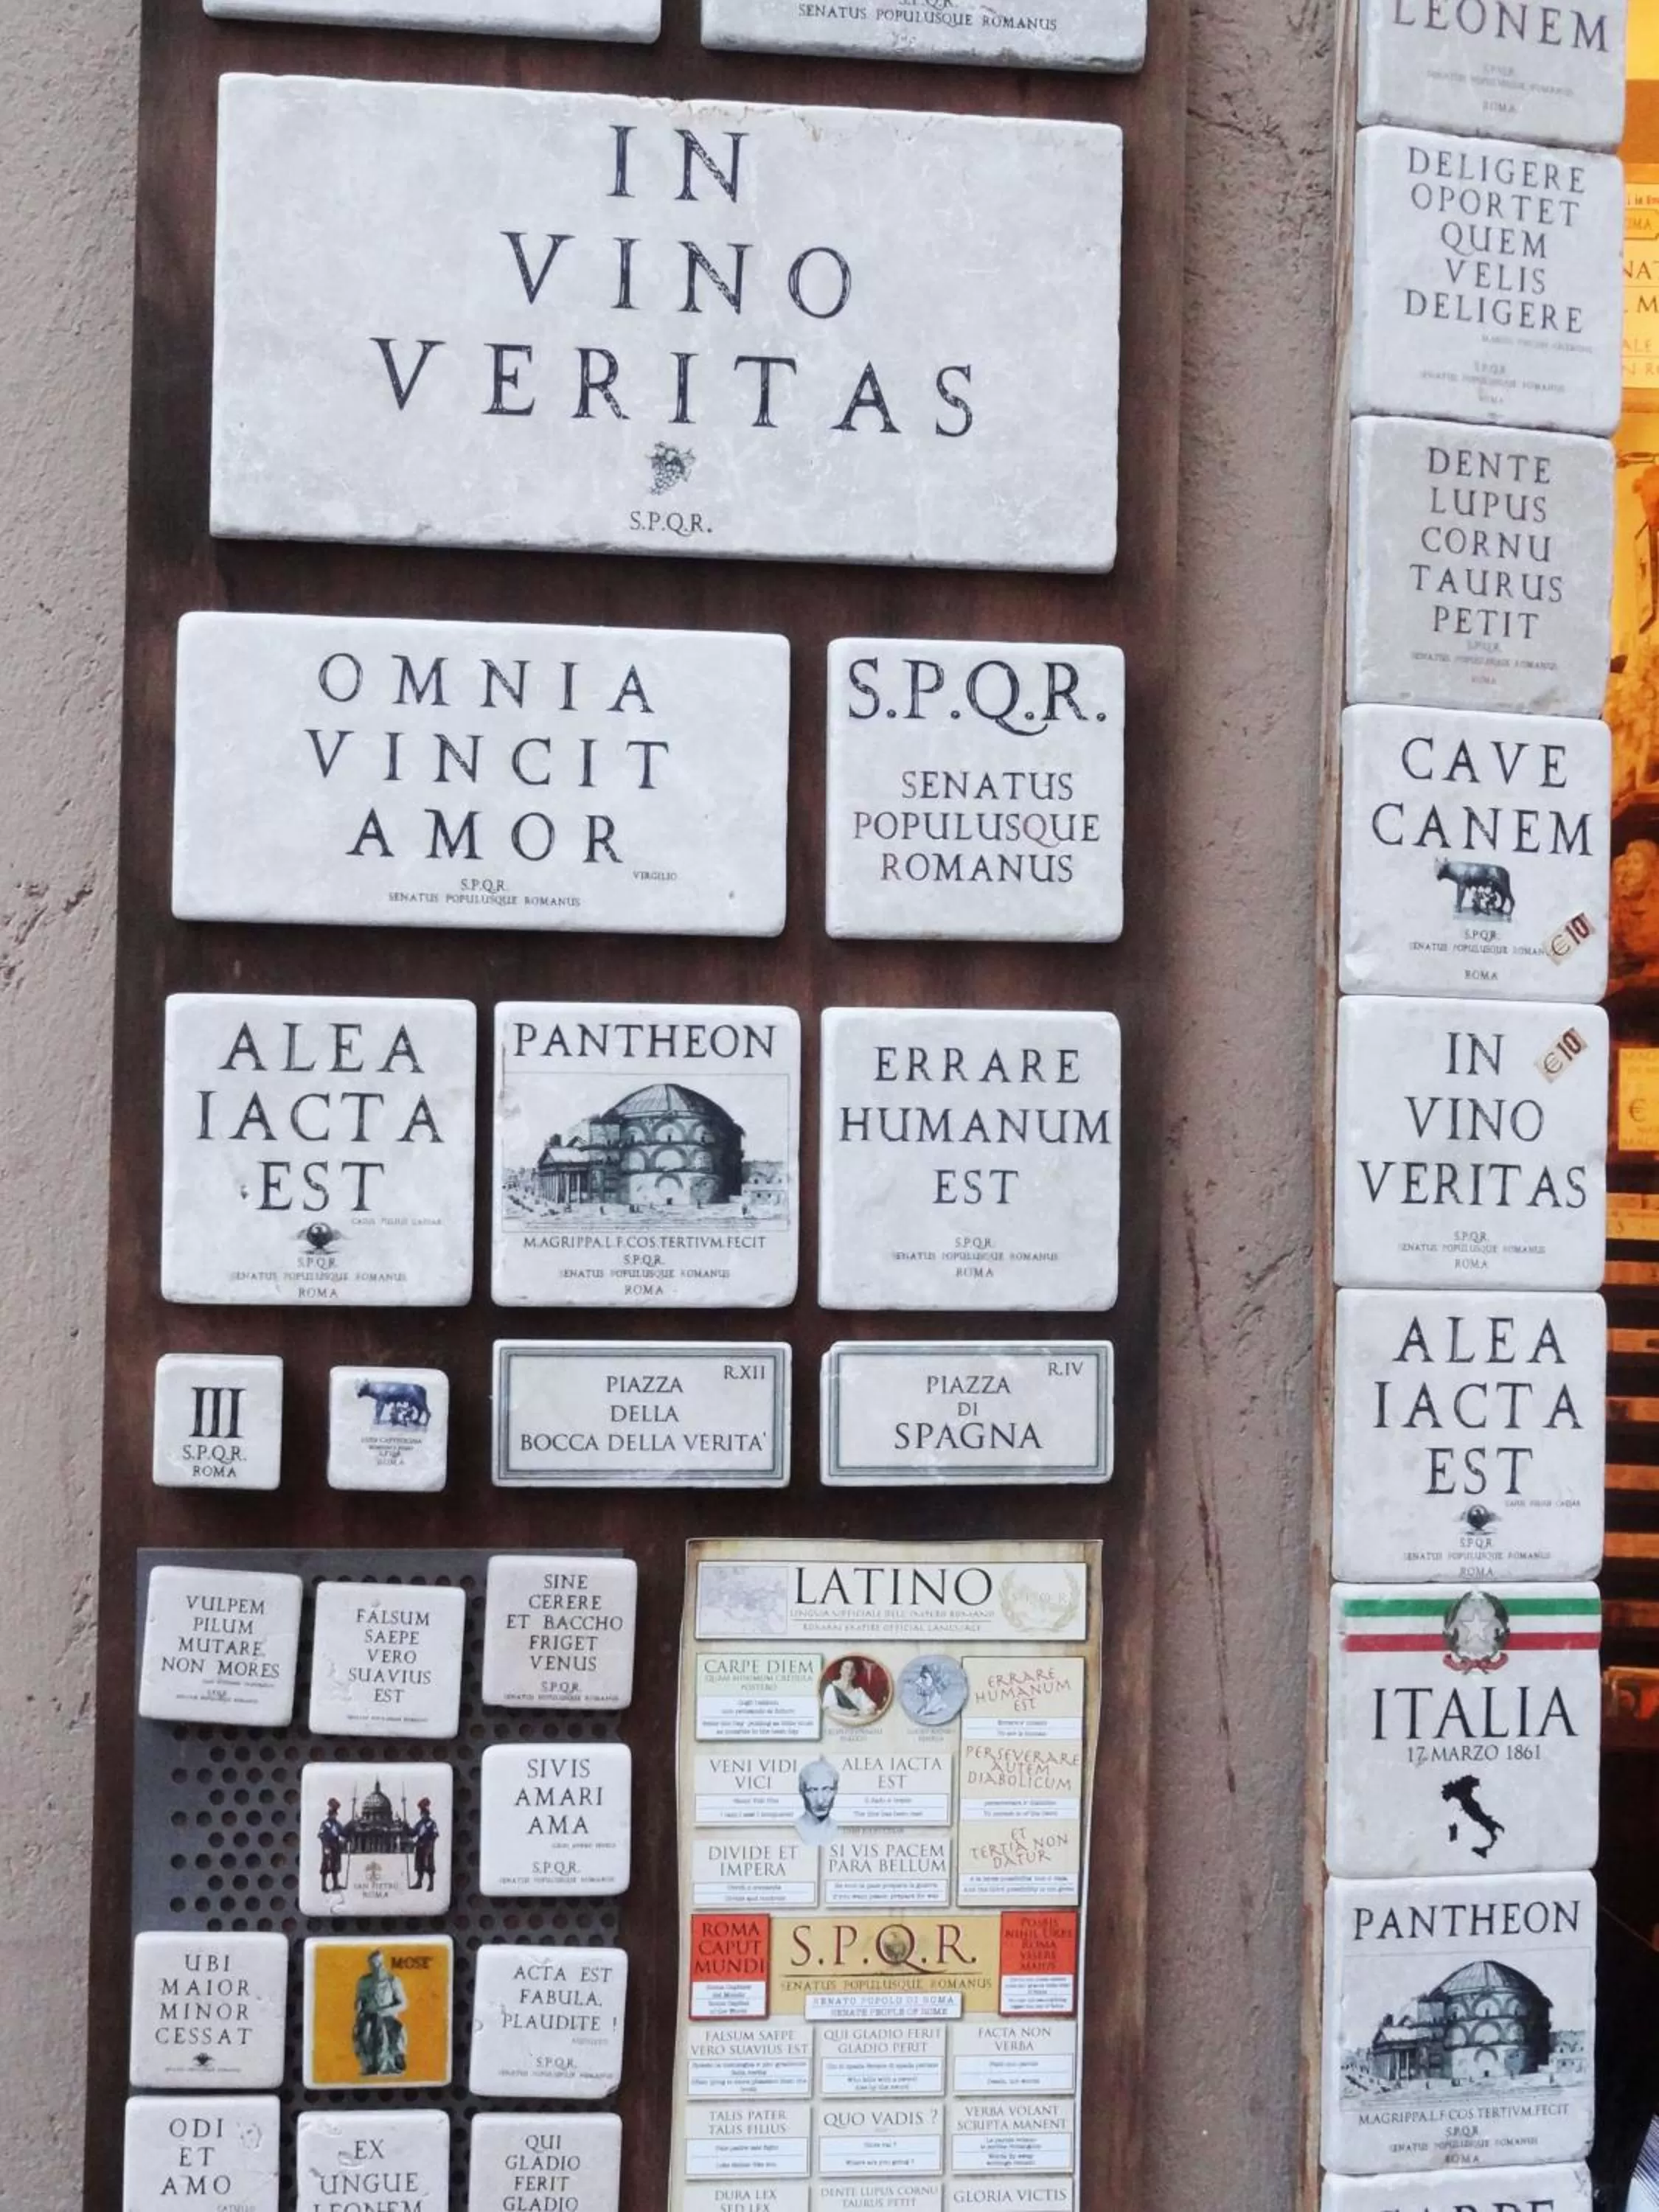 SENATUS POPULUSQUE ROMANUS
IN
VINO
VERITAS
S.P.Q.R.
OMNIA
VINCIT
AMOR
VIRGILIO
S.P.Q.R.
SENATUS POPULUSQUE ROMANUS
S.P.Q.R.
SENATUS
POPULUSQUE
ROMANUS
ALEA
IACTA
EST
S.P.Q.R.
SENATUS POPULUSQUE ROMANUS
ROMA
PANTHEON
M.AGRIPPA.L.F.COS.TERTIVM.FECIT
S.P.Q.R.
SENATUS POPULUSQUE ROMANUS
ROMA
ERRARE
HUMANUM
EST
S.P.Q.R.
SENATUS POPULUSQUE ROMANUS
ROMA
III
S.P.Q.R.
ROMA
ROMA
R.XII
PIAZZA
DELLA
BOCCA DELLA VERITA'
R.IV
PIAZZA
DI
SPAGNA
VULPEM
PILUM
MUTARE
NON MORES
FALSUM
SAEPE
VERO
SUAVIUS
EST
SINE
CERERE
ET BACCHO
FRIGET
VENUS
S.P.Q.R.
SENATUS POPULUSQUE ROMANUS
SAN PIETRO
ROMA
SIVIS
AMARI
AMA
S.P.Q.R.
UBI
MAIOR
MINOR
CESSAT
MOSE'
ACTA EST
FABULA,
PLAUDITE !
S.P.Q.R.
ODI
ET
AMO
CATULLO
EX
UNGUE
LEONEM
QUI
GLADIO
FERIT
GLADIO
LATINO
LINGUA UFFICIALE DELL'IMPERO ROMANO
ROMAN EMPIRE OFFICIAL LANGUAGE
S.P.Q.R.
CARPE DIEM
QUAM MINIMUM CREDULA
POSTERO
ERRARE
HUMANUM
EST
VENI VIDI
VICI
ALEA IACTA
EST
PERSEVERARE
AUTEM
DIABOLICUM
DIVIDE ET
IMPERA
SI VIS PACEM
PARA BELLUM
ET
TERTIA NON
DATUR
ROMA
CAPUT
MUNDI
S.P.Q.R.
SENATUS POPULUSQUE ROMANUS
SENATO POPOLO DI ROMA
SENATE PEOPLE OF ROME
POSSIS
NIHIL URBE
ROMA
VISERE
MAIUS
FALSUM SAEPE
VERO SUAVIUS EST
QUI GLADIO FERIT
GLADIO PERIT
FACTA NON
VERBA
TALIS PATER
TALIS FILIUS
QUO VADIS ?
Where are you going ?
VERBA VOLANT
SCRIPTA MANENT
DURA LEX
SED LEX
DENTE LUPUS CORNU
TAURUS PETIT
GLORIA VICTIS
LEONEM
S.P.Q.R.
ROMA
DELIGERE
OPORTET
QUEM
VELIS
DELIGERE
S.P.Q.R.
SENATUS POPULUSQUE ROMANUS
ROMA
DENTE
LUPUS
CORNU
TAURUS
PETIT
S.P.Q.R.
SENATUS POPULUSQUE ROMANUS
ROMA
CAVE
CANEM
S.P.Q.R.
SENATUS POPULUSQUE ROMAN
€10
ROMA
IN
€10
VINO
VERITAS
S.P.Q.R.
SENATUS POPULUSQUE ROMANUS
ROMA
ALEA
IACTA
EST
S.P.Q.R.
SENATUS POPULUSQUE ROMANUS
ROMA
ITALIA
17 MARZO 1861
PANTHEON
M.AGRIPPA.L.F.COS.TERTIVM.FECIT
S.P.Q.R.
SENATUS POPULUSQUE ROMANUS
ROMA
CARPE